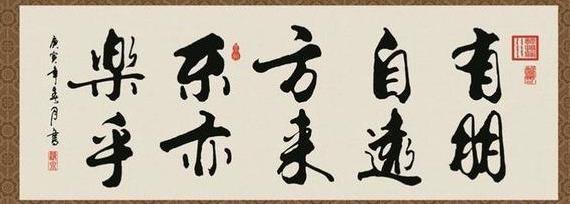 有朋
自遠
方来
不亦
楽乎
庚寅年春月書